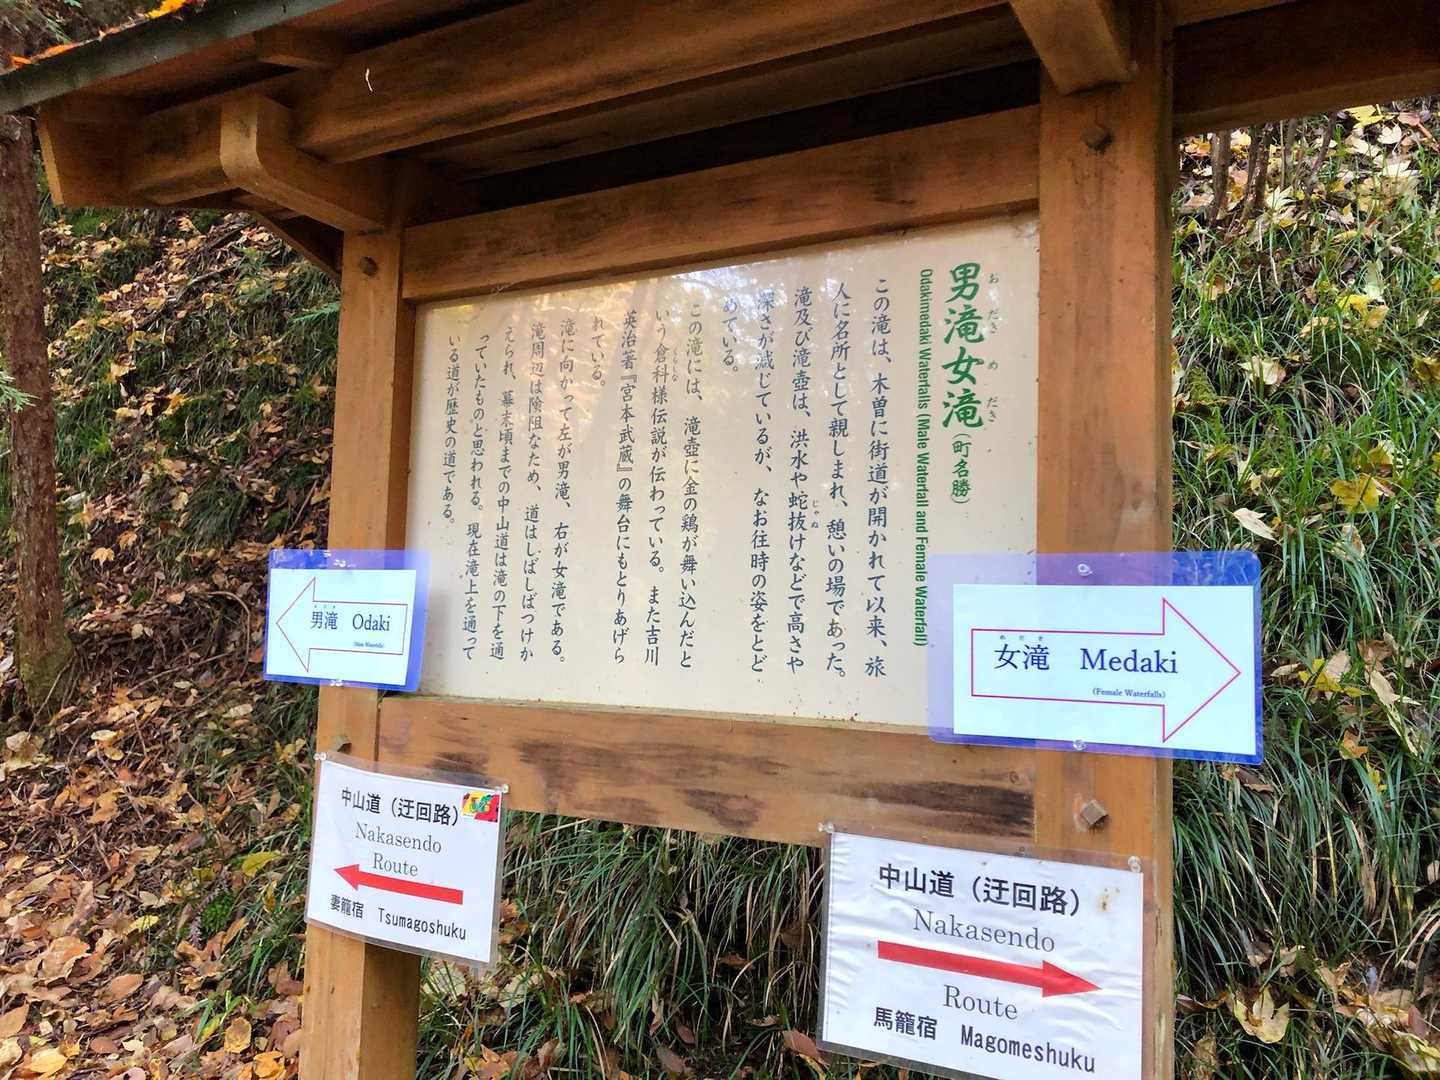 男滝女滝（町名勝）
おだき めだき
Odakimedaki Waterfalls (Male Waterfall and Female Waterfall)
この滝は、木曽に街道が開かれて以来、旅
人に名所として親しまれ、憩いの場であった。
滝及び滝壺は、洪水や蛇抜けなどで高さや
じゃぬ
深さが減じているが、なお往時の姿をとど
めている。
この滝には、滝壺に金の鶏が舞い込んだと
いう倉科様伝説が伝わっている。また吉川
くらしな
英治著『宮本武蔵』の舞台にもとりあげら
れている。
滝に向かって左が男滝、右が女滝である。
滝周辺は険阻なため、道はしばしばつけか
えられ、幕末頃までの中山道は滝の下を通
っていたものと思われる。現在滝上を通って
いる道が歴史の道である。
おだき
男滝 Odaki
(Male Waterfalls)
めだき
女滝 Medaki
(Female Waterfalls)
中山道（迂回路）
Nakasendo
Route
妻籠宿 Tsumagoshuku
中山道（迂回路）
Nakasendo
Route
馬籠宿 Magomeshuku